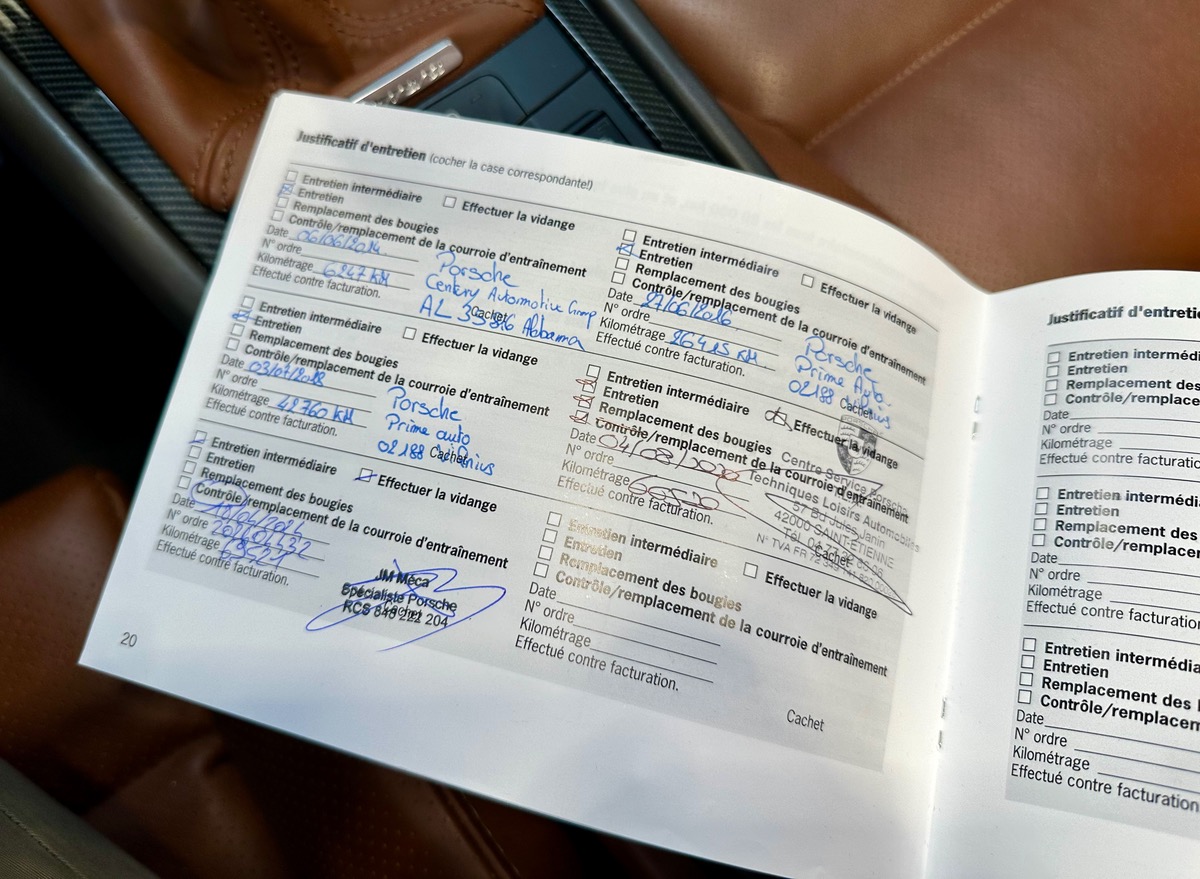 Justificatif d'entretien (cocher la case correspondante!)
Entretien intermédiaire
Effectuer la vidange
Entretien
Remplacement des bougies
Contrôle/remplacement de la courroie d'entraînement
Date 06/06/2014
N° ordre
Kilométrage 6247 KM
Effectué contre facturation.
Porsche
Centery Automotive Group
AL Alabama
Cachet
Entretien intermédiaire
Effectuer la vidange
Entretien
Remplacement des bougies
Contrôle/remplacement de la courroie d'entraînement
Date 27/06/2016
N° ordre
Kilométrage 26415 KM
Effectué contre facturation.
Porsche
Prime Auto
02188 Vilnius
Cachet
Entretien intermédiaire
Effectuer la vidange
Entretien
Remplacement des bougies
Contrôle/remplacement de la courroie d'entraînement
Date 03/07/2018
N° ordre
Kilométrage 42760 KM
Effectué contre facturation.
Porsche
Prime auto
02188 Vilnius
Cachet
Entretien intermédiaire
Effectuer la vidange
Entretien
Remplacement des bougies
Contrôle/remplacement de la courroie d'entraînement
Date 04/08/2020
N° ordre
Kilométrage
Effectué contre facturation.
Centre Service Porsche
Techniques Loisirs Automobiles
57 Bd Jules Janin
42000 SAINT-ETIENNE
Tél.
N° TVA FR
Cachet
Entretien intermédiaire
Effectuer la vidange
Entretien
Remplacement des bougies
Contrôle/remplacement de la courroie d'entraînement
Date
N° ordre
Kilométrage
Effectué contre facturation.
JM Méca
Spécialiste Porsche
RCS 849 222 204
Cachet
Entretien intermédiaire
Effectuer la vidange
Entretien
Remplacement des bougies
Contrôle/remplacement de la courroie d'entraînement
Date
N° ordre
Kilométrage
Effectué contre facturation.
Cachet
20
Justificatif d'entretie
Entretien intermédi
Entretien
Remplacement des
Contrôle/remplace
Date
N° ordre
Kilométrage
Effectué contre facturatio
Entretien intermédi
Entretien
Remplacement des
Contrôle/remplace
Date
N° ordre
Kilométrage
Effectué contre facturation
Entretien intermédia
Entretien
Remplacement des
Contrôle/remplacem
Date
N° ordre
Kilométrage
Effectué contre facturation